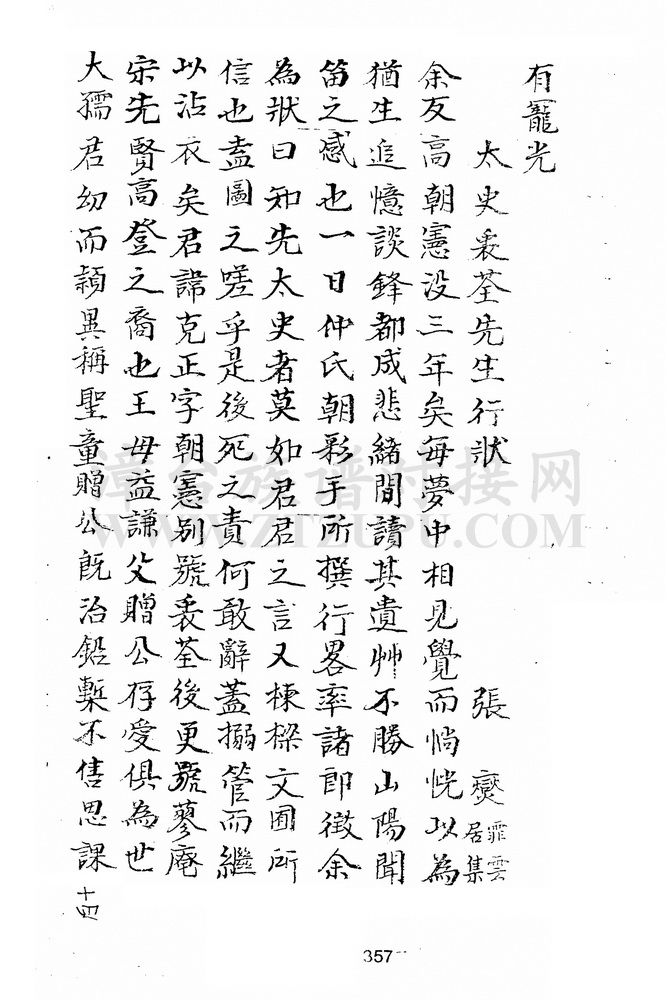 有寵光
太史裴荃先生行狀 張燮 霏雲居集
余友高朝憲沒三年矣每夢中相見覺而惝恍以為
猶生追憶談鋒都成悲緒間讀其遺艸不勝山陽聞
笛之感也一日仲氏朝彩手所撰行畧率諸郎徵余
為狀曰知先太史者莫如君君之言又棟樑文囿所
信也盍圖之嗟乎是後死之責何敢辭蓋搦管而繼
以沾衣矣君諱克正字朝憲別號裴荃後更號蓼庵
宋先賢高登之裔也王母益謙父贈公存愛俱為世
大孺君幼而穎異稱聖童贈公既治鉛槧不售思課
十四
漳台族谱对接网
WWW.ZTZUPU.COM
357